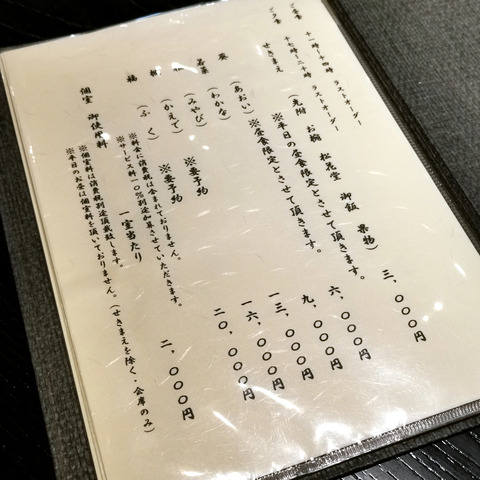 ご昼食 十一時~十四時 ラストオーダー
ご夕食 十七時~二十時 ラストオーダー
せきまえ (先附 お椀 松花堂 御飯 果物) 三、〇〇〇円
※平日の昼食限定とさせて頂きます。
葵 (あおい) ※昼食限定とさせて頂きます。 六、〇〇〇円
若菜 (わかな) 九、〇〇〇円
(みやび) 一三、〇〇〇円
(かえで) ※要予約 一六、〇〇〇円
福 (ふく) ※要予約 二〇、〇〇〇円
※料金に消費税は含まれておりません。
※サービス料一〇%別途加算させていただきます。
個室 御使用料 一室当たり 二、〇〇〇円
※個室料は消費税別途頂戴致します。
※平日のお昼は個室料を頂いておりません。(せきまえを除く・会席のみ)